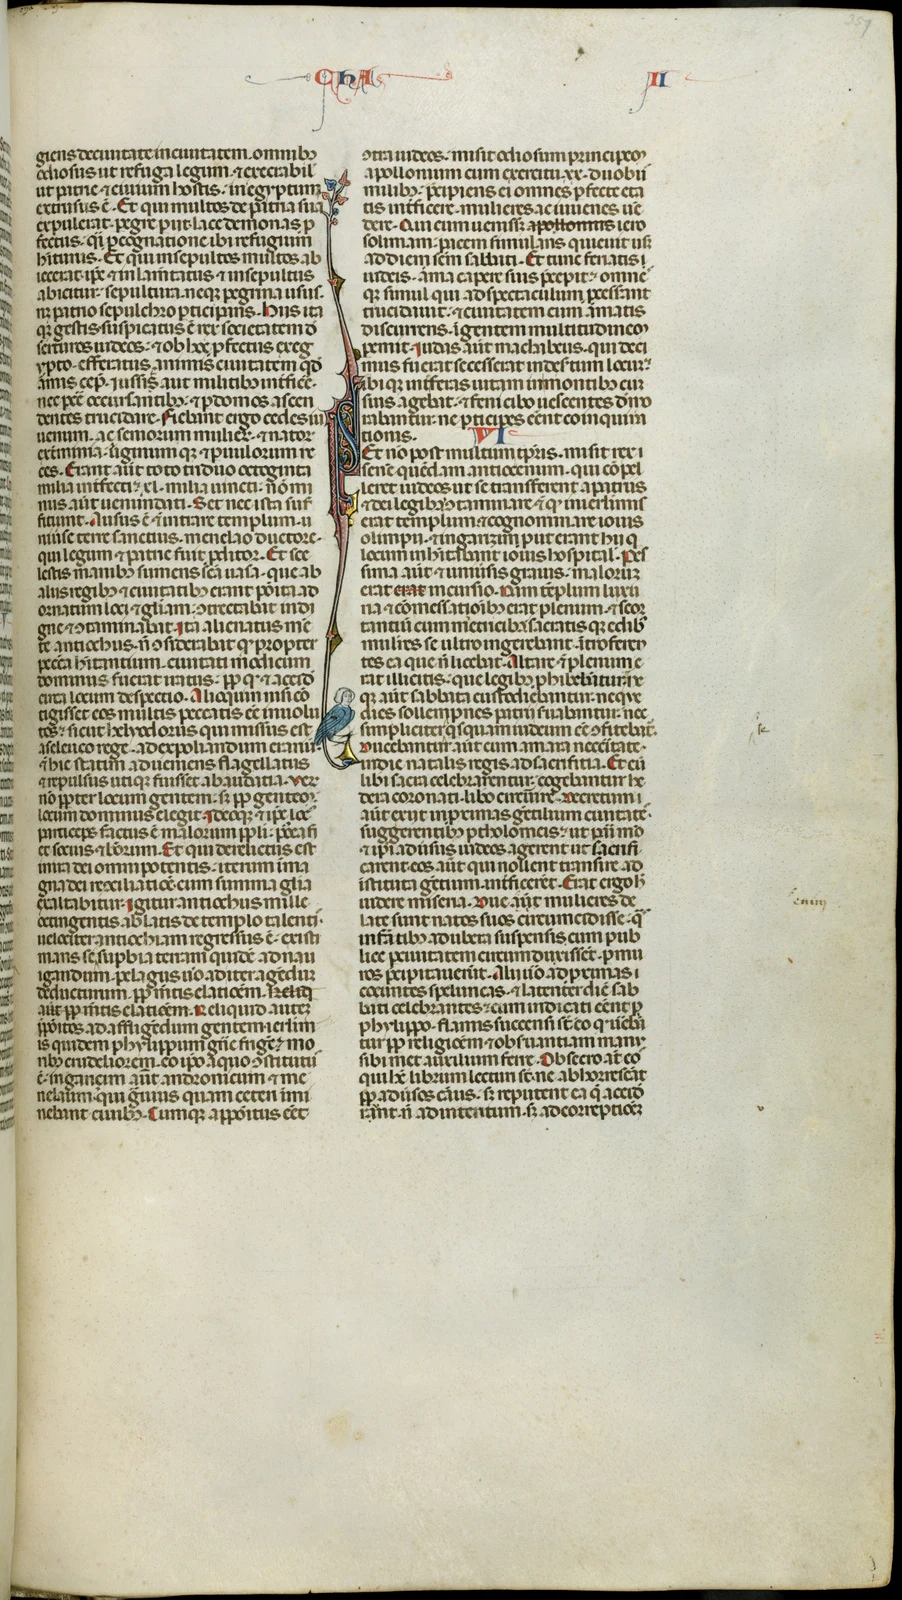 ChA II
giens de ciuitate in ciuitatem. omnibꝫ
odiosus ut refuga legum. ⁊ execrabil̾
ut patrie ⁊ ciuium hostis. in egyptum
extrusus ē. Et qui multos de patria sua
expulerat. pegre p̾iit. lacedemonas p̾
fectus. q̾i p cognatione ibi refugium
hītinus. Et qui insepultos multos ab
iecerat. ip̄e ⁊ inlamtatus ⁊ insepultus
abicitur. sepultura neqꝫ pegrina usus.
nꝫ patrio sepulchro pticipans. Hiis ita
qꝫ gestis. suspicatus ē rex societatem d̄
serturos iudeos. ⁊ ob hꝫ p̾fectus ex eg
ypto. efferatus animis ciuitatem qd̄
armis cep̄. Iussit aūt militibꝫ int̄fice
nec p̾ce occursantibꝫ. ⁊ p domos ascen
dentes trucidare. Fiebant ergo cedes iu
uenum. ac seniorum mulieꝝ. ⁊ natoꝝ
extinia. uirginum qꝫ ⁊ puulorum ne
ces. Erant aūt toto triduo octoginta
milia int̄fecti. xl. milia uincti. nō mi
nus aūt uenundati. Set nec ista suf
ficiunt. Ausus ē ⁊ intrare templum. u
niuīse terre sanctius. menelao ductore.
qui legum ⁊ patrie fuit p̾ditor. Et sce
lestis manibꝫ sumens sc̄a uasa. que ab
aliis regibꝫ ⁊ ciuitatibꝫ erant poīta ad
ornatum loci ⁊ gl̄iam. ꝯtrectabat indi
gne ⁊ ꝯtaminabat. Ita alienatus mē
te antiochus. nō ꝯsiderabat qꝫ propter
pecc̄a h̄itantium. ciuitati modicum
dominus fuerat iratus. pp̄ qꝫ ⁊ accid
circa locum despectio. Alioquin nisi cō
tigisset eos multis peccatis eē inuolu
tos. sicut helyodorus qui missus est
a seleuco rege. ad expoliandum erariū.
⁊ hic statim adueniens flagellatus
⁊ repulsus utiqꝫ fuisset ab audatia. Veꝝ
nō pp̄ter locum gentem. sꝫ pp̄ gentem.
locum dominus elegit. Ideoqꝫ ⁊ ip̄e loc̾
particeps factus ē malorum pp̄li. postea fi
et socius ⁊ bonorum. Et qui derelictus est
in ira dei omnipotentis. iterum in ma
gna dei recōciliatiōe cum summa gl̄ia
exaltabitur. Igitur antiochus mille
octingentis ablatis de templo talentis.
uelociter antiochiam regressus ē. existi
mans se supbia terram quidē ad naui
igandum. pelagus uō ad iter agēdum
deducturum. pp̄ mentis elatiōem. Reliq
aūt pp̄ mentis elatiōem. Reliquid autem
ppōitos ad affligēdum gentem. ierl̄im
is quidem phylippum gn̄e frigeꝫ. mo
ribꝫ crudeliorem. eo ip̄o a quo ꝯstitutū
ē. in garicim aūt andronicum ⁊ me
nelaum. qui grauius quam ceteri īmi
nebant ciuibꝫ. Cumqꝫ appōitus eēt
ꝯtra iudeos. misit odiosum principem
apollonium cum exercitu. xx. duobꝫ
milibꝫ. p̾cipiens ei omnes p̾fecte eta
tis int̄ficere. mulieres ac iuuenes uē
dere. Qui cum uenisset apollonius iero
solimam. pacem simulans quieuit usqꝫ
ad diem sc̄m sabbati. Et tunc feriatis i
udeis. arma capere suis p̾cepit. omnē
qꝫ simul qui ad spectaculum p̾cessant
trucidauit. ⁊ ciuitatem cum armatis
discurrens. īgentem multitudinem
p̾emit. Iudas aūt machabeus. qui deci
mus fuerat secesserat in desertum locum.
ibi qꝫ int̄ feras uitam in montibꝫ cum
suis agebat. ⁊ feni cibo uescentes d̄mo
rabantur. ne pticipes eēnt coinquina
tionis.
VI
Et nō post multum tp̄ris. misit rex i
senē quēdam antiocenum. qui cōpel
leret iudeos ut se transferrent a patriis
⁊ dei legibꝫ. ꝯtaminare ⁊ qꝫ in ierl̄imis
erat templum. ⁊ cognominare iouis
olimpii. ⁊ in garizim put erant hii qꝫ
locum inhitabant iouis hospital̾. Pes
sima aūt ⁊ uniuīsis grauis. malorum
erat erat incursio. Nam tēplum luxu
ria ⁊ cōmessatiōibꝫ erat plenum. ⁊ scor
tantiū cum metricibꝫ. sacratis qꝫ edibꝫ
mulieres se ultro ingerebant. ītroferen
tes ea que nō licebat. Altare ⁊ plenum e
rat illicitis. que legibꝫ phibebantur. ne
qꝫ aūt sabbata custodiebantur. neqꝫ
dies sollempnes patrii seruabantur. nec
simpliciter quisquam iudeum eē ꝯfitebat̾.
Ducebantur aūt cum amara necc̄itate.
in die natalis regis ad sacrifitia. Et cū
liberi sacra celebrarentur. cogebantur he
dera coronati. libo circuīre. Decretum i
aūt exiit in primas gentilium ciuitates.
suggerentibꝫ ptholomeis. ut pari mō
⁊ ip̄i aduīsus iudeos agerent ut sacrifi
carent. eos aūt qui nollent transire ad
īstituta gētium. int̄ficerēt. Erat ergo h̄
uidere miseria. Due aūt mulieres de
late sunt natos suos circumcidisse. qꝫ
infātibꝫ ad ubera suspensis cum pub
lice p ciuitatem circumduxissēt. p mu
ros p̾cipitauerūt. Alii uō ad proximas i
coeuntes speluncas. ⁊ latenter diē sab
bati celebrantes. cum indicati eēnt p̾
phylippo. flamis succensi sunt. eo qꝫ uereb̄
tur pp̄ religiōem ⁊ obseruantiam manu
sibimet auxilium ferre. Obsecro aūt eos
qui hꝫ librum lecturi sunt. ne abhorrescāt
pp̄ aduīsos casus. sꝫ reputent ea q̄ accid
erūnt. nō ad interitum. sꝫ ad correptiōem
se
enim